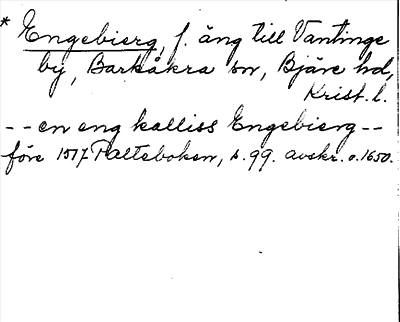 * Engebierg, f. äng till Vantinge
by, Barkåkra sn, Bjäre hd,
Krist. l.
-- en eng kalliss Engebierg --
före 1517 Palteboken, s. 99. avskr. o. 1650.